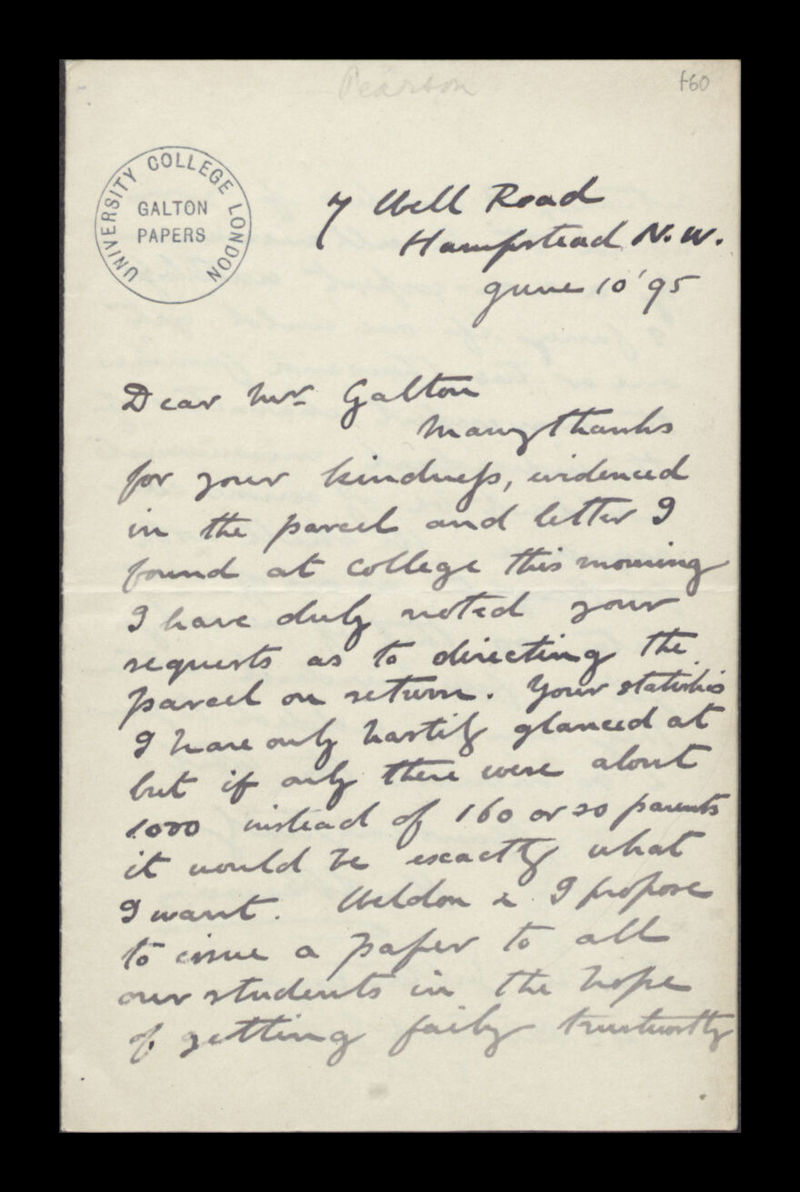 Pearson
f60
UNIVERSITY COLLEGE LONDON
GALTON
PAPERS
7 Well Road
Hampstead N.W.
June 10 '95
Dear Mr. Galton
Many thanks
for your kindness, evidenced
in the parcel and letter I
found at College this morning
I have duly noted your
requests as to directing the
parcel on return. Your statistics
I have only hastily glanced at
but if only there were about
1000 instead of 160 or so parents
it would be exactly what
I want. Weldon & I propose
to issue a paper to all
our students in the hope
of getting fairly trustworthy